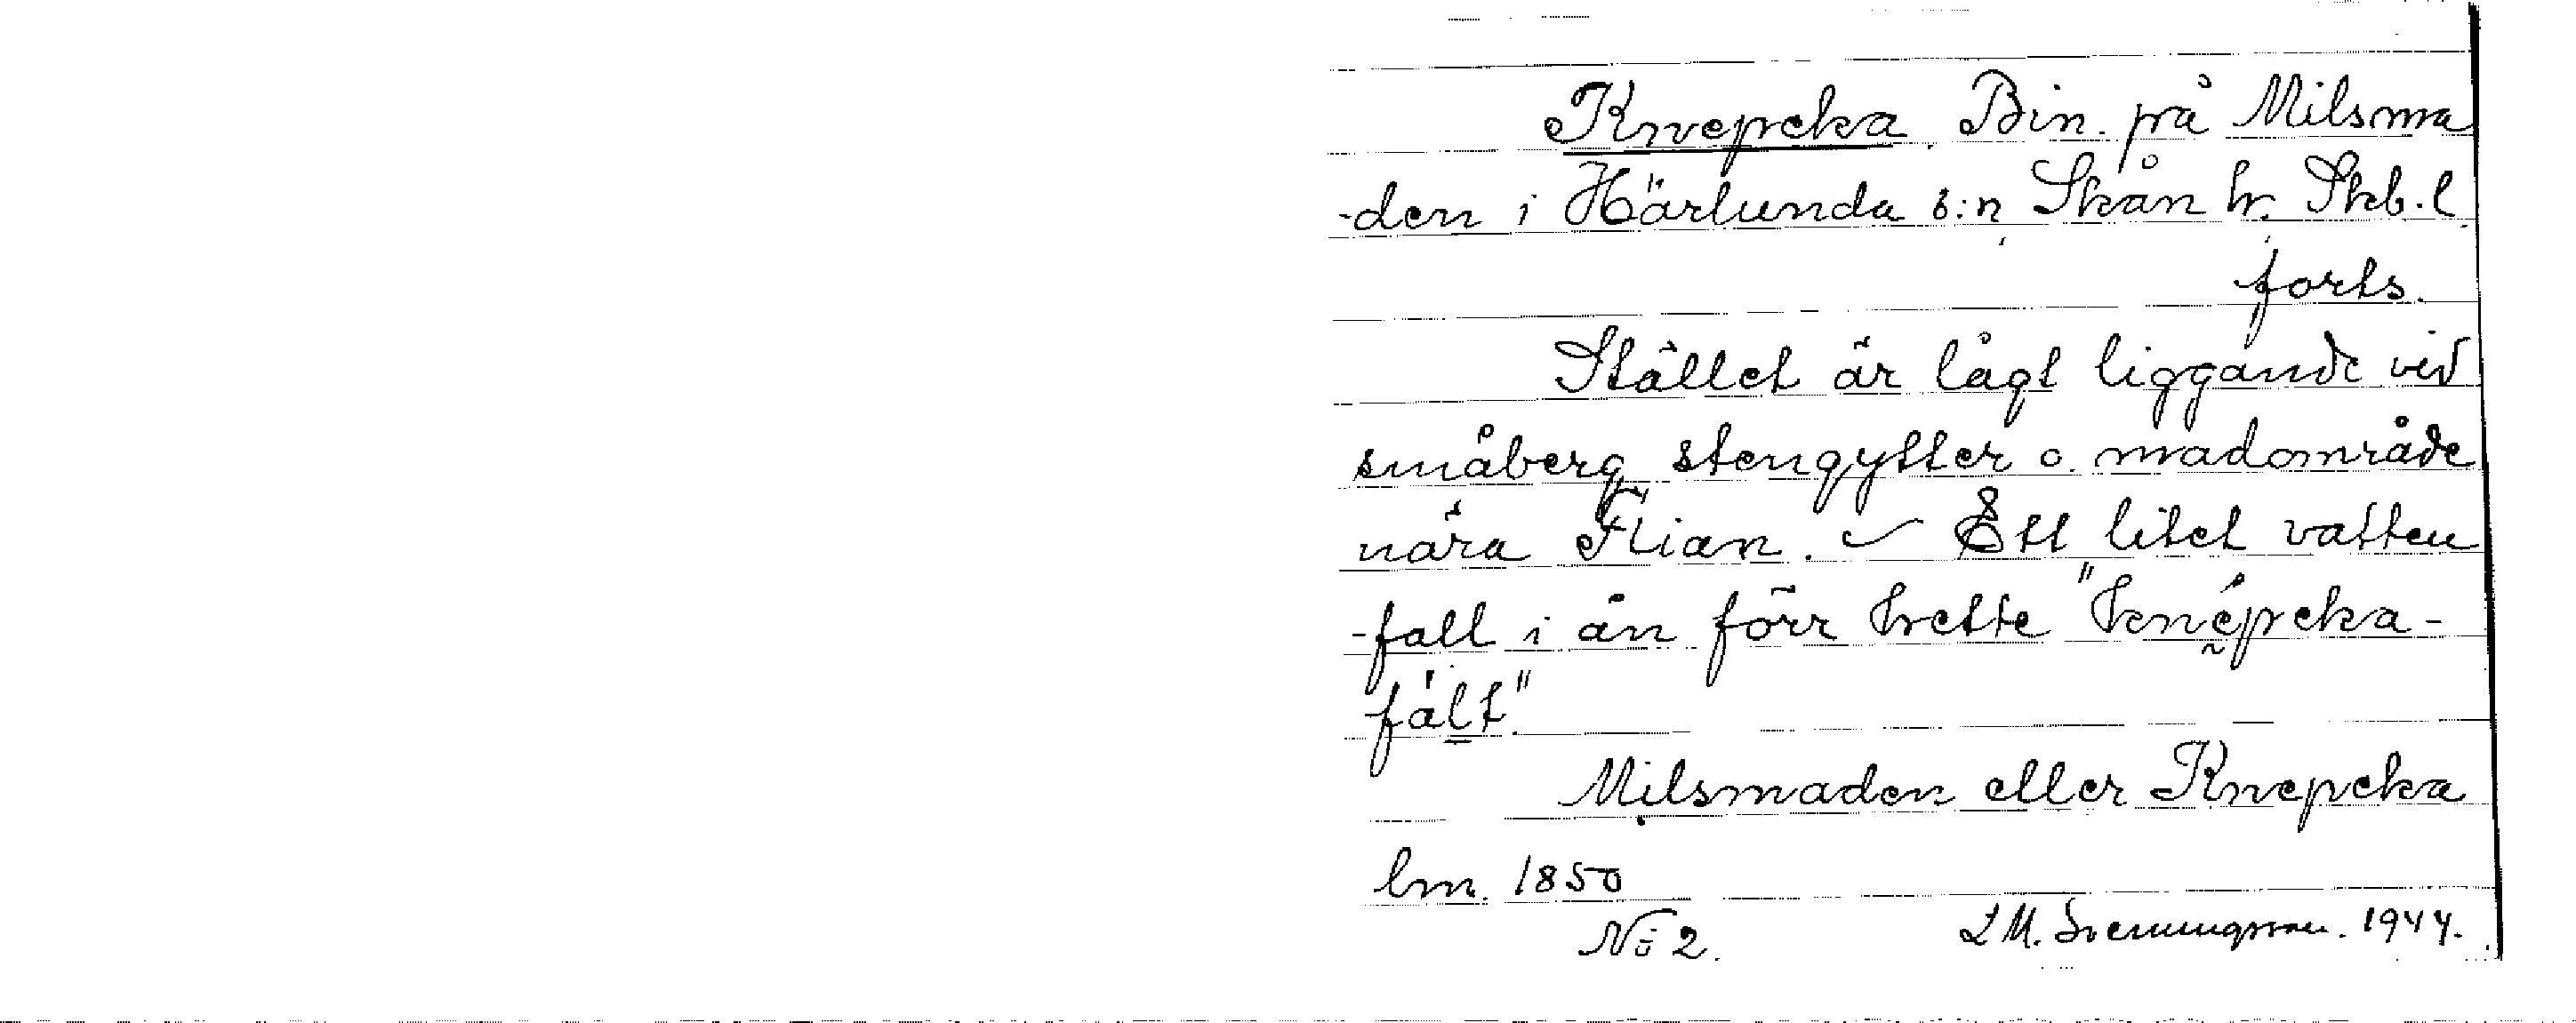 Knepeka Bin. på Milsma
-den i Härlunda s:n Skån hr. Skb. l.
forts.
Stället är lågt liggande vid
småberg, stengytter o. madområde
nära Flian. – Ett litet vatten
-fall i ån förr hette "knépeka-
fàlt".
Milsmaden eller Knepeka
lm. 1850
No 2. L M. Svenungsson. 1944.